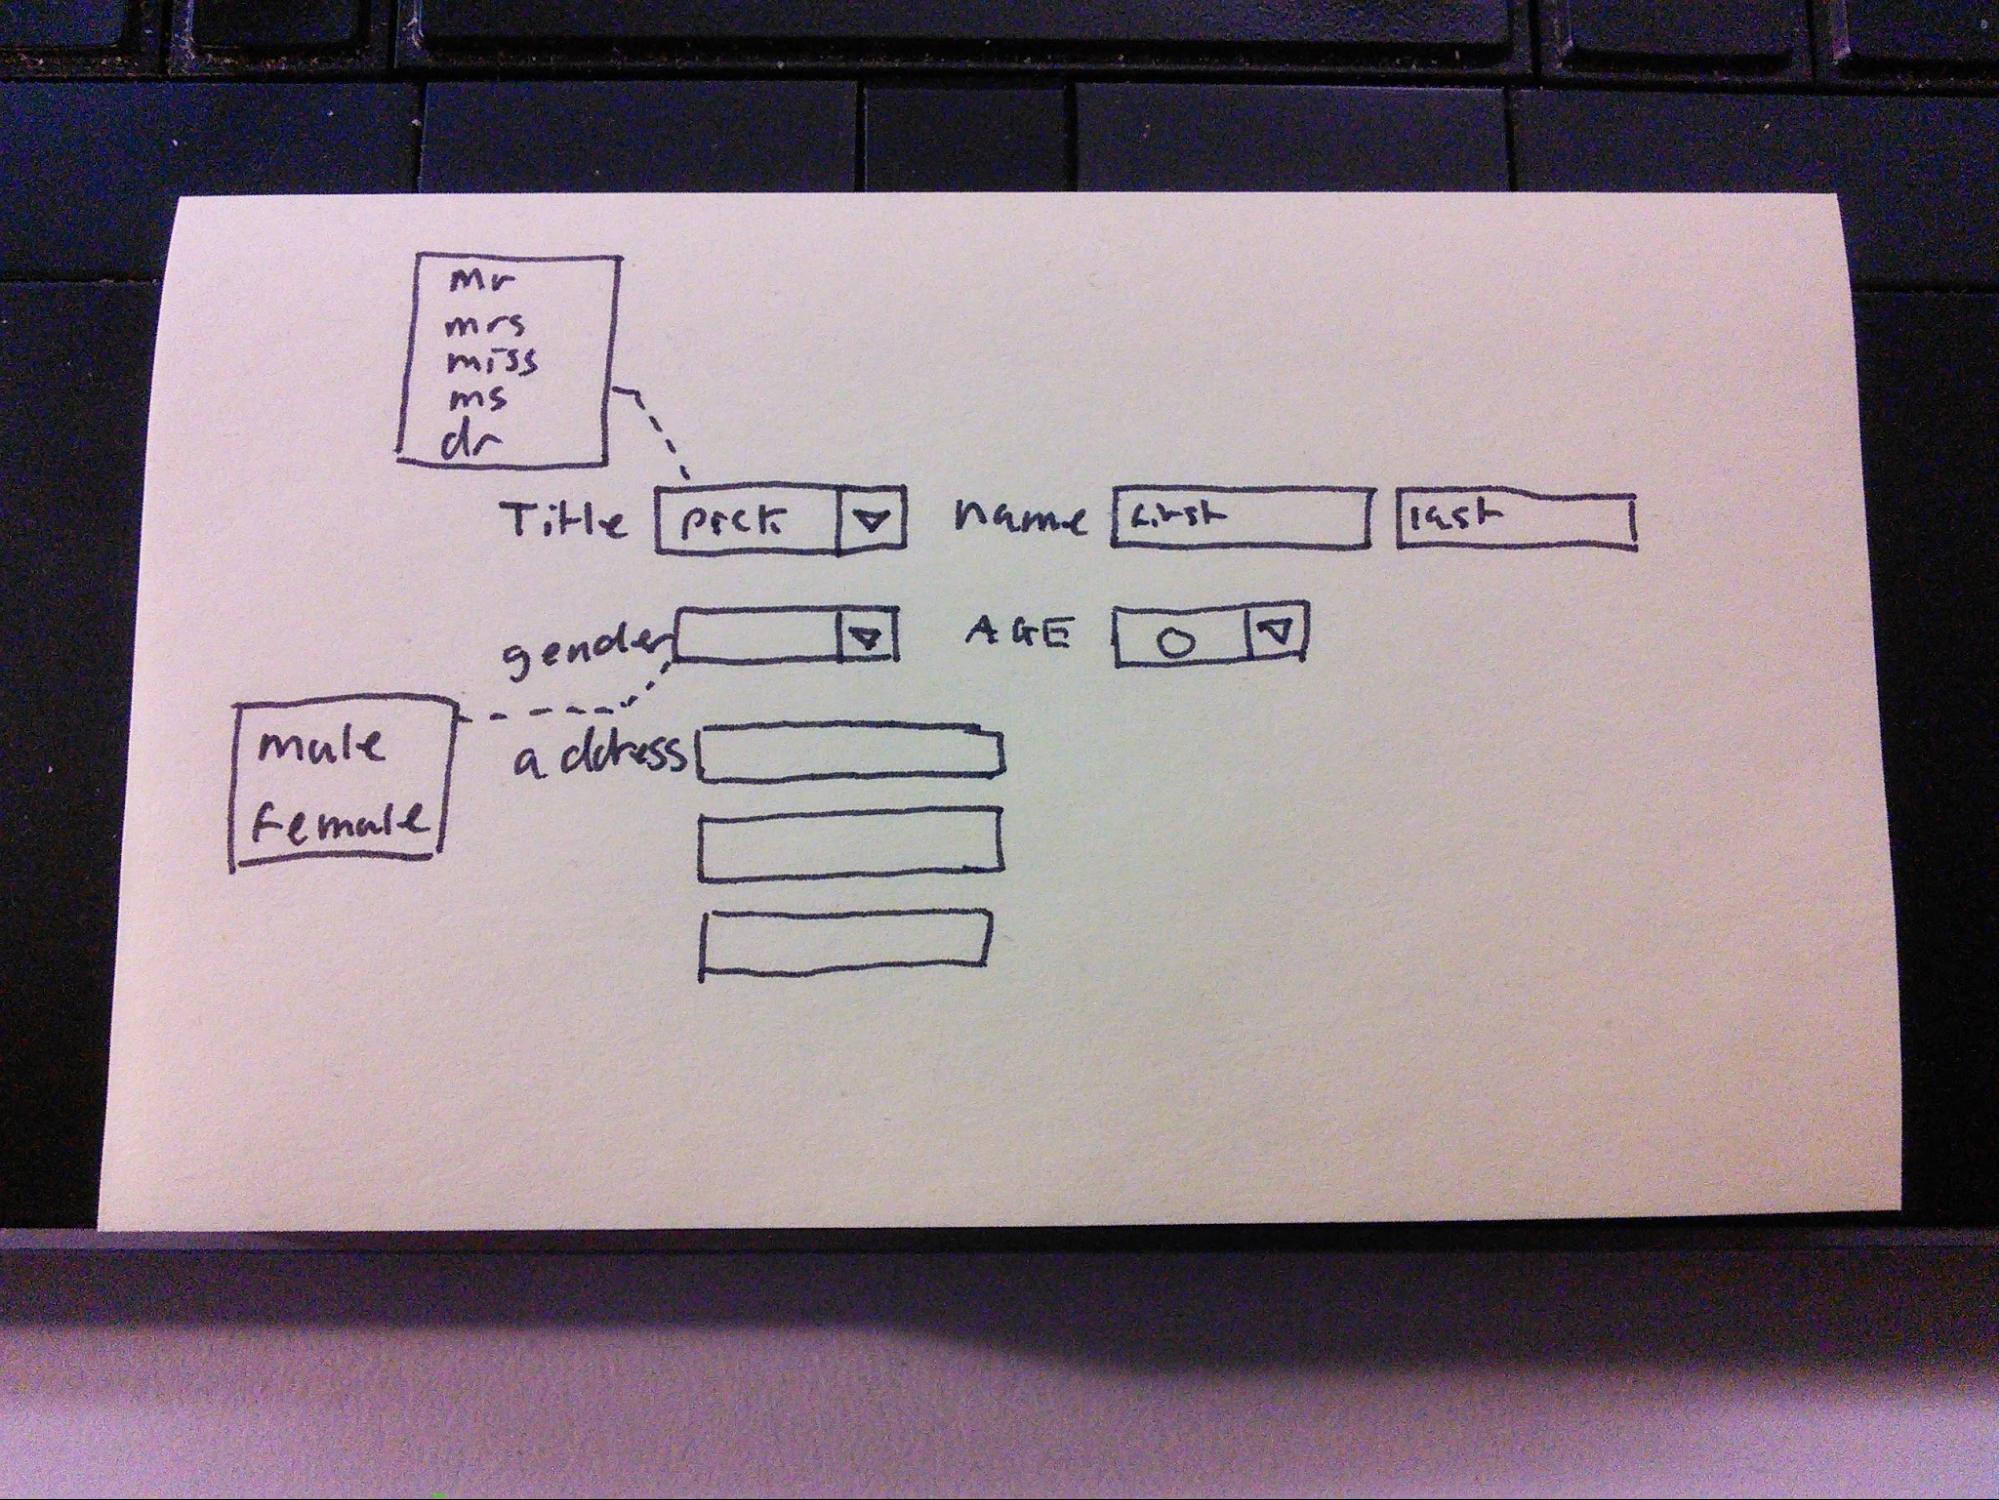 Mr
mrs
miss
ms
dr
Title pick name first last
gender AGE 0
male
female
address